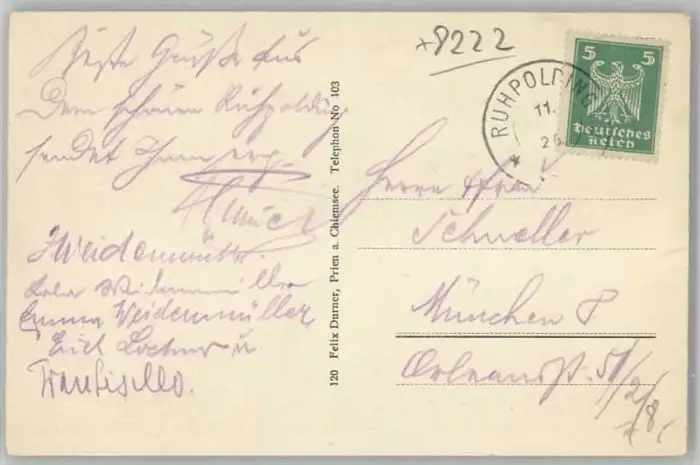 +8222
Beste Grüße aus
Dem schönen Ruhpolding
sendet Ihnen erg.
Weidenmüller
Weidenmüller
Emma Weidenmüller
Erich Lochner u.
120 Felix Durner, Prien a. Chiemsee. Telephon No 103
RUHPOLDING
11.
26
5 5
Deutsches
Reich
Herrn u. Frau
Schneller
München 8
Orleansst. 51/2/8